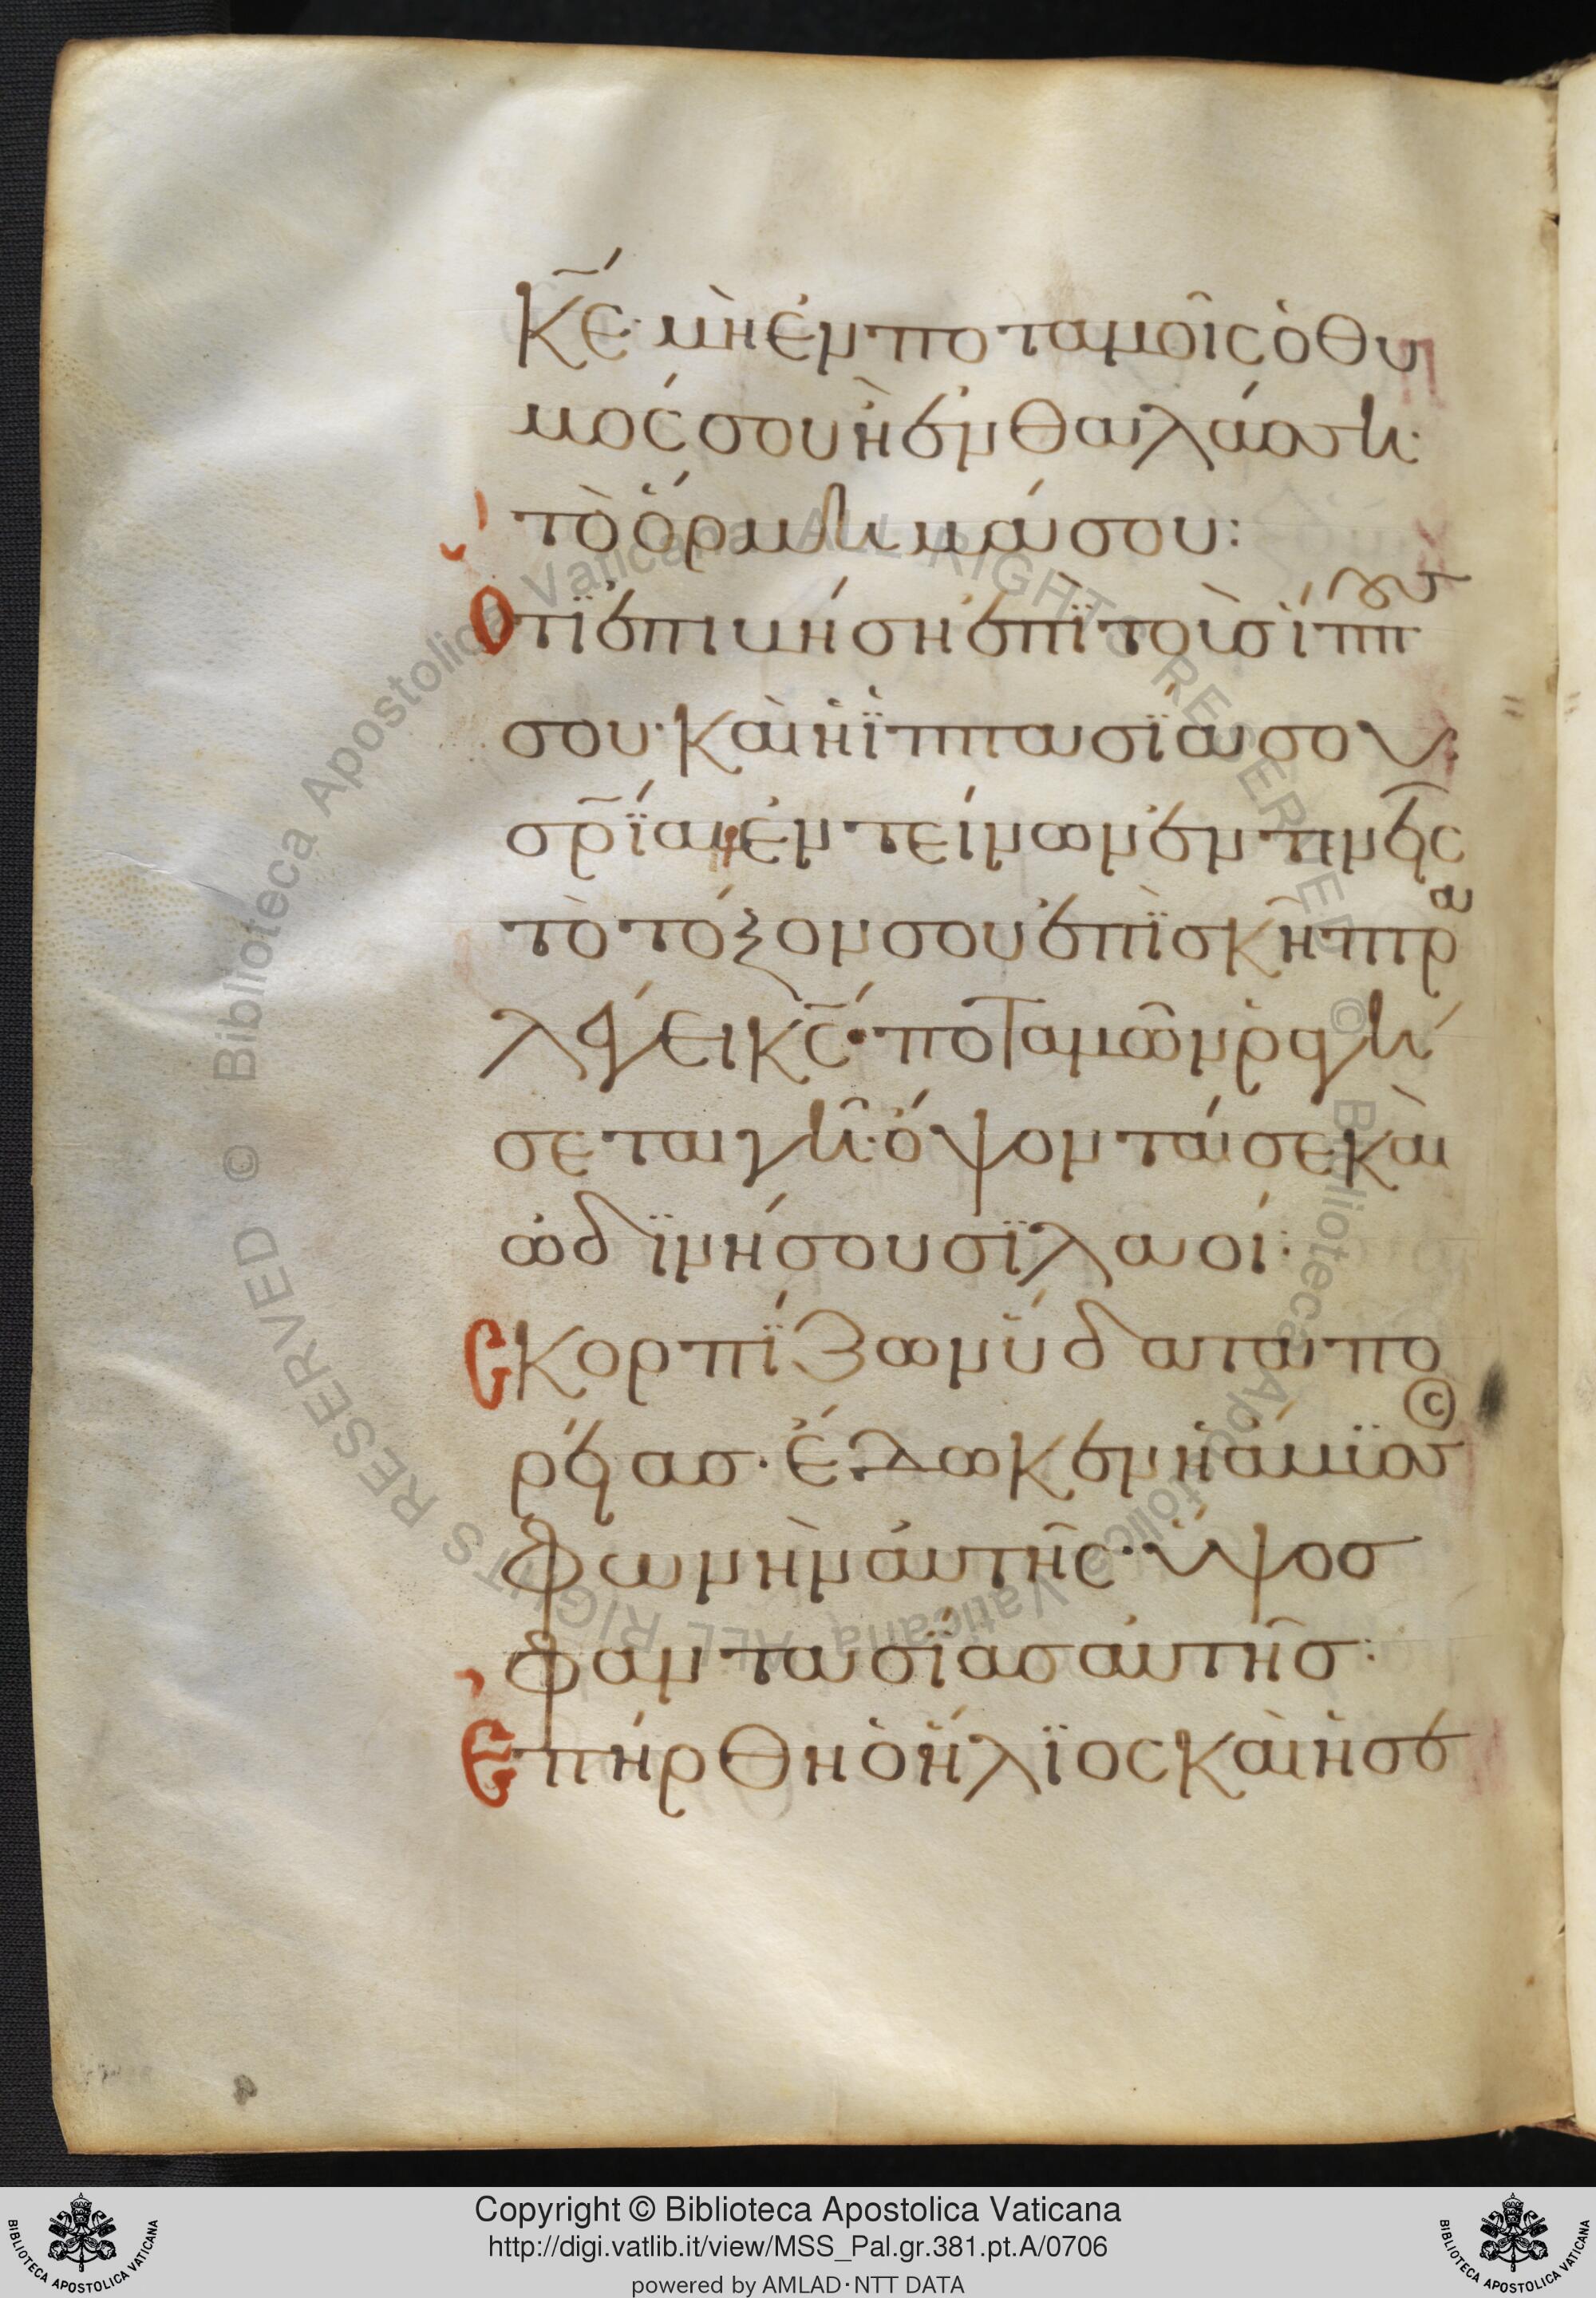 κ̅ε̅· μὴ ἐν ποταμοῖς ὁ θυ
μός σου ἢ ἐν θαλάσση·
τὸ ὅρμημά σου:
Ὅτι ἐπιβήση ἐπὶ τοὺσ ἵππους
σου· καὶ ἡ ἱππασία σου
σρ̅ία· ἐντείνων ἐντενεῖς
τὸ τόξον σου ἐπὶ σκῆπτρα
λέγει κ̅ς̅· ποταμῶν ῥαγή
σεται γῆ· ὄψονταί σε καὶ
ὠδινήσουσι λαοί:
Σκορπίζων ὕδατα πο
ρείασ· ἔδωκεν ἡ ἄβυσσοσ
φωνὴν αὐτῆς· ὕψοσ
φαντασίασ αὐτῆσ:
Ἐπήρθη ὁ ἥλιος καὶ ἡ σε
Copyright © Biblioteca Apostolica Vaticana
http://digi.vatlib.it/view/MSS_Pal.gr.381.pt.A/0706
powered by AMLAD·NTT DATA
BIBLIOTECA APOSTOLICA VATICANA
BIBLIOTECA APOSTOLICA VATICANA
© Biblioteca Apostolica Vaticana ALL RIGHTS RESERVED © Biblioteca Apostolica Vaticana ALL RIGHTS RESERVED